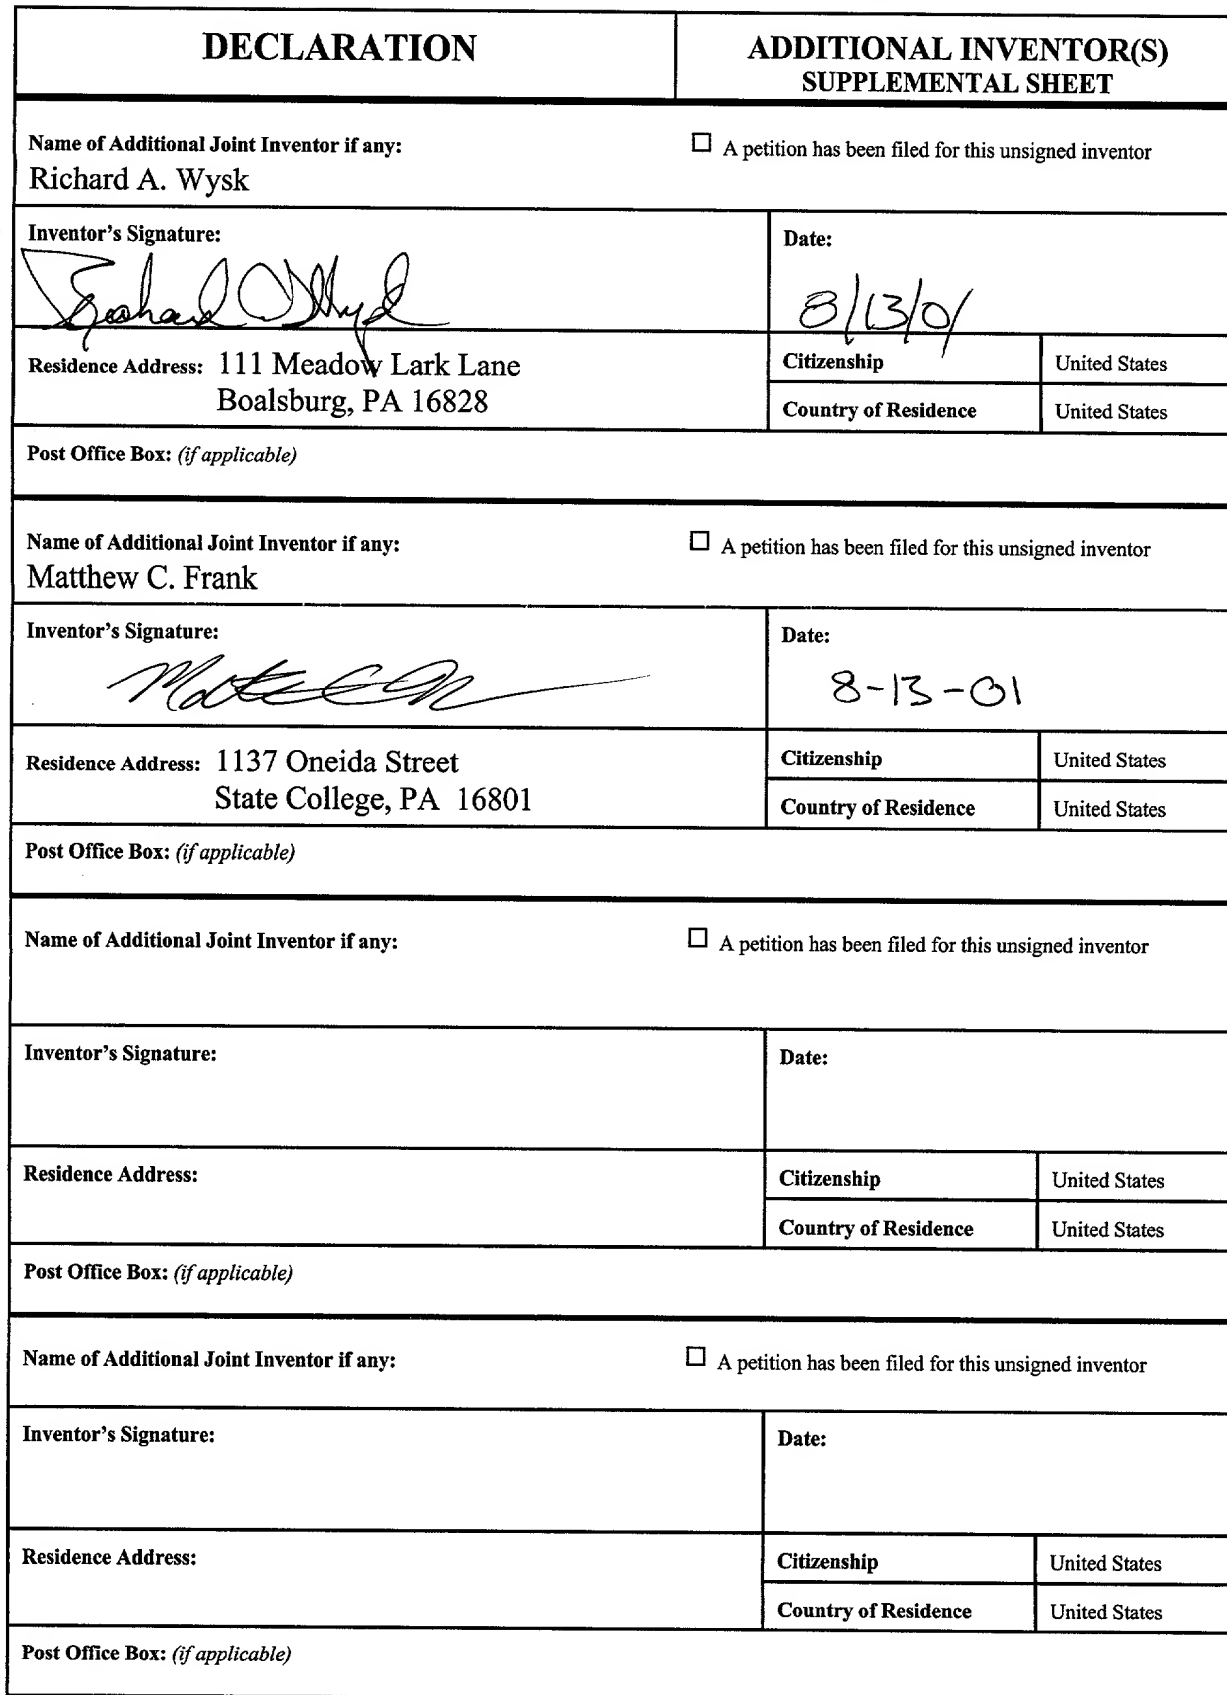 DECLARATION
ADDITIONAL INVENTOR(S)
SUPPLEMENTAL SHEET
Name of Additional Joint Inventor if any:
☐ A petition has been filed for this unsigned inventor
Richard A. Wysk
Inventor's Signature:
Date:
8/13/01
Residence Address: 111 Meadow Lark Lane
Boalsburg, PA 16828
Citizenship
United States
Country of Residence
United States
Post Office Box: (if applicable)
Name of Additional Joint Inventor if any:
☐ A petition has been filed for this unsigned inventor
Matthew C. Frank
Inventor's Signature:
Date:
8-13-01
Residence Address: 1137 Oneida Street
State College, PA 16801
Citizenship
United States
Country of Residence
United States
Post Office Box: (if applicable)
Name of Additional Joint Inventor if any:
☐ A petition has been filed for this unsigned inventor
Inventor's Signature:
Date:
Residence Address:
Citizenship
United States
Country of Residence
United States
Post Office Box: (if applicable)
Name of Additional Joint Inventor if any:
☐ A petition has been filed for this unsigned inventor
Inventor's Signature:
Date:
Residence Address:
Citizenship
United States
Country of Residence
United States
Post Office Box: (if applicable)